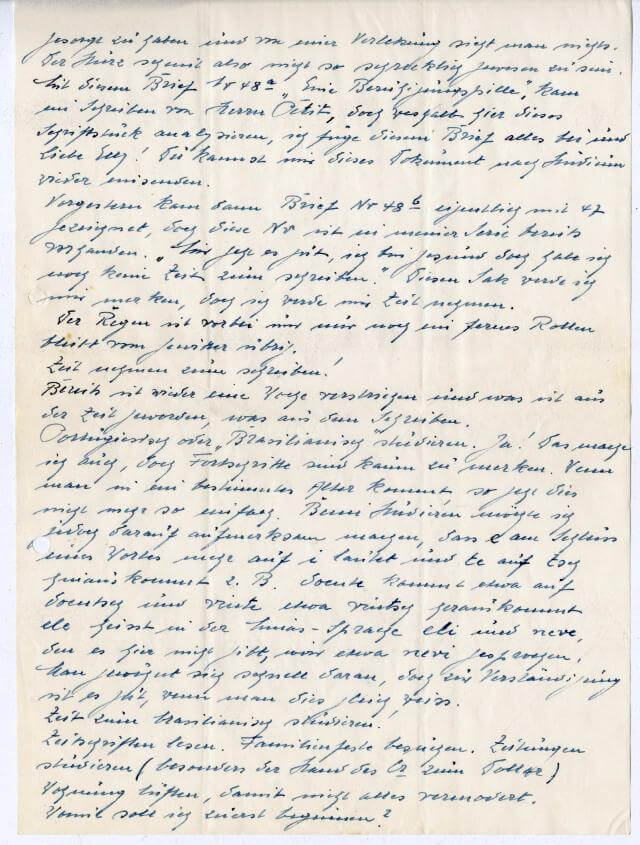 gesorgt zu haben und von einer Verletzung sieht man nichts.
Der Sturz scheint also nicht so schrecklich gewesen zu sein.
Mit diesem Brief Nr 48a „Eine Beruhigungspille", kam
ein Schreiben von Herrn Petit, doch weshalb hier dieses
Schriftstück analysieren, ich füge diesem Brief alles bei und
Liebe Elly! Du kannst mir dieses Dokument nach Studium
wieder einsenden.
Vorgestern kam dann Brief Nr 48b eigentlich mit 47
gezeichnet, doch diese Nr ist in meiner Serie bereits
vorhanden. „Mir geht es gut, ich bin gesund doch habe ich
noch keine Zeit zum schreiben." Diesen Satz werde ich
mir merken, doch ich werde mir Zeit nehmen.
Der Regen ist vorbei und nur noch ein fernes Rollen
bleibt vom Gewitter übrig.
Zeit nehmen zum schreiben!
Bereits ist wieder eine Woche verstrichen und was ist aus
der Zeit geworden, was aus dem Schreiben.
Portugiesisch oder „Brasilianisch studieren. Ja! Das mache
ich auch, doch Fortschritte sind kaum zu merken. Wenn
man in ein bestimmtes Alter kommt, so geht dies
nicht mehr so einfach. Beim Studieren möchte ich
jedoch darauf aufmerksam machen, dass e am Schluss
eines Wortes mehr auf i lautet und te auf tsch
hinauskommt z. B. doente kommt etwa auf
doentsch und vinte etwa vintsch herauskommt
ele heisst in der Minas-Sprache eli und neve,
den es hier nicht gibt, wie etwa nevi gesprochen.
Man gewöhnt sich schnell daran, doch zur Verständigung
ist es gut, wenn man dies gleich weiss.
Zeit zum brasilianisch studieren.
Zeitschriften lesen. Familienfeste besuchen. Zeitungen
studieren (besonders der Stand des Cr zum Dollar)
Wohnung lüften, damit nicht alles vermodert.
Womit soll ich zuerst beginnen?